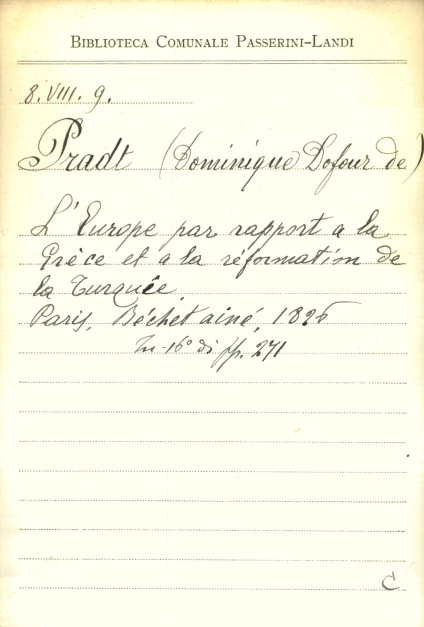 BIBLIOTECA COMUNALE PASSERINI-LANDI
8.VIII.9.
Pradt (Dominique Dofour de)
L'Europe par rapport a la
Grèce et a la réformation de
la Turquie
Paris, Béchet ainé, 1826
In-16° di pp. 271
C